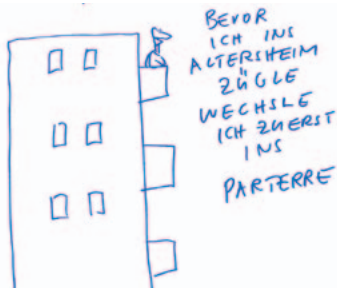 BEVOR
ICH INS
ALTERSHEIM
ZÜGLE
WECHSLE
ICH ZUERST
INS
PARTERRE